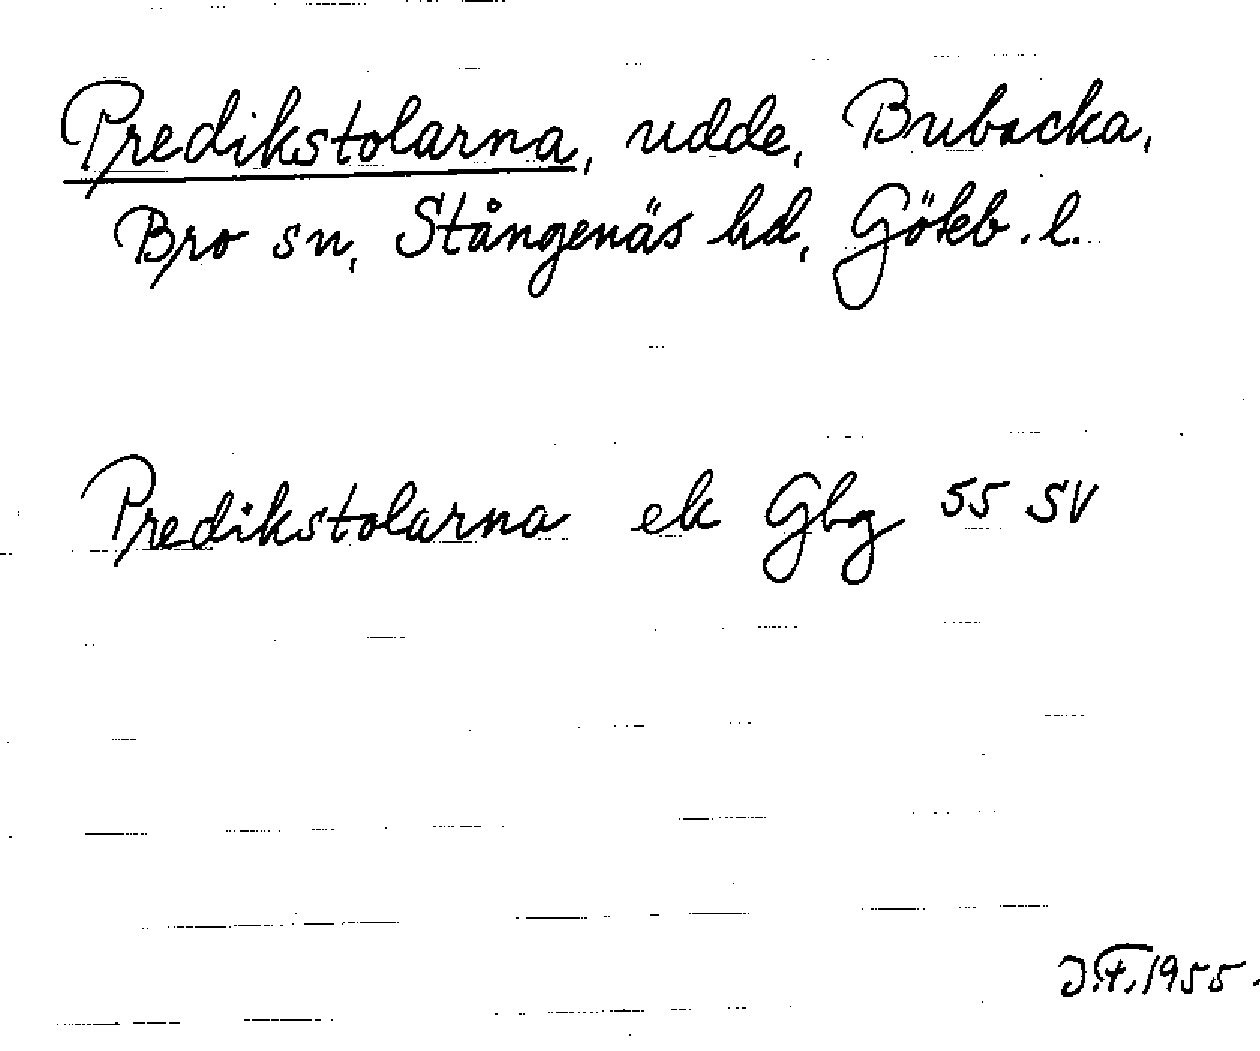 Predikstolarna, udde, Bubacka,
Bro sn, Stångenäs hd, Göteb. l.
Predikstolarna ek Gbg 55 SV
J.F. 1955.